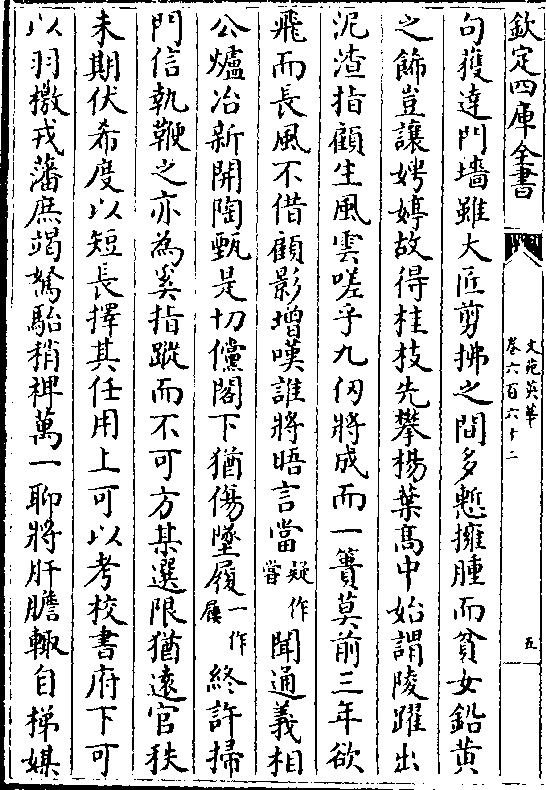 欽定四庫全書
文苑英華
卷六百六十二
五
句獲達門墻雖大匠剪拂之間多慙擁腫而貧女鉛黄
之飾豈讓娉婷故得桂枝先攀楊葉髙中始謂陵躍出
泥渣指顧生風雲嗟乎九仭將成而一簣莫前三年欲
飛而長風不借顧影增嘆誰將晤言當疑作嘗聞通義相
公爐冶新開陶甄是切儻閤下猶傷墜履一作屨終許掃
門信執鞭之亦為奚指蹤而不可方某選限猶逺官秩
未期伏希度以短長擇其任用上可以考校書府下可
以羽檄戎藩庶竭駑駘稍裨萬一聊將肝膽輙自梯媒